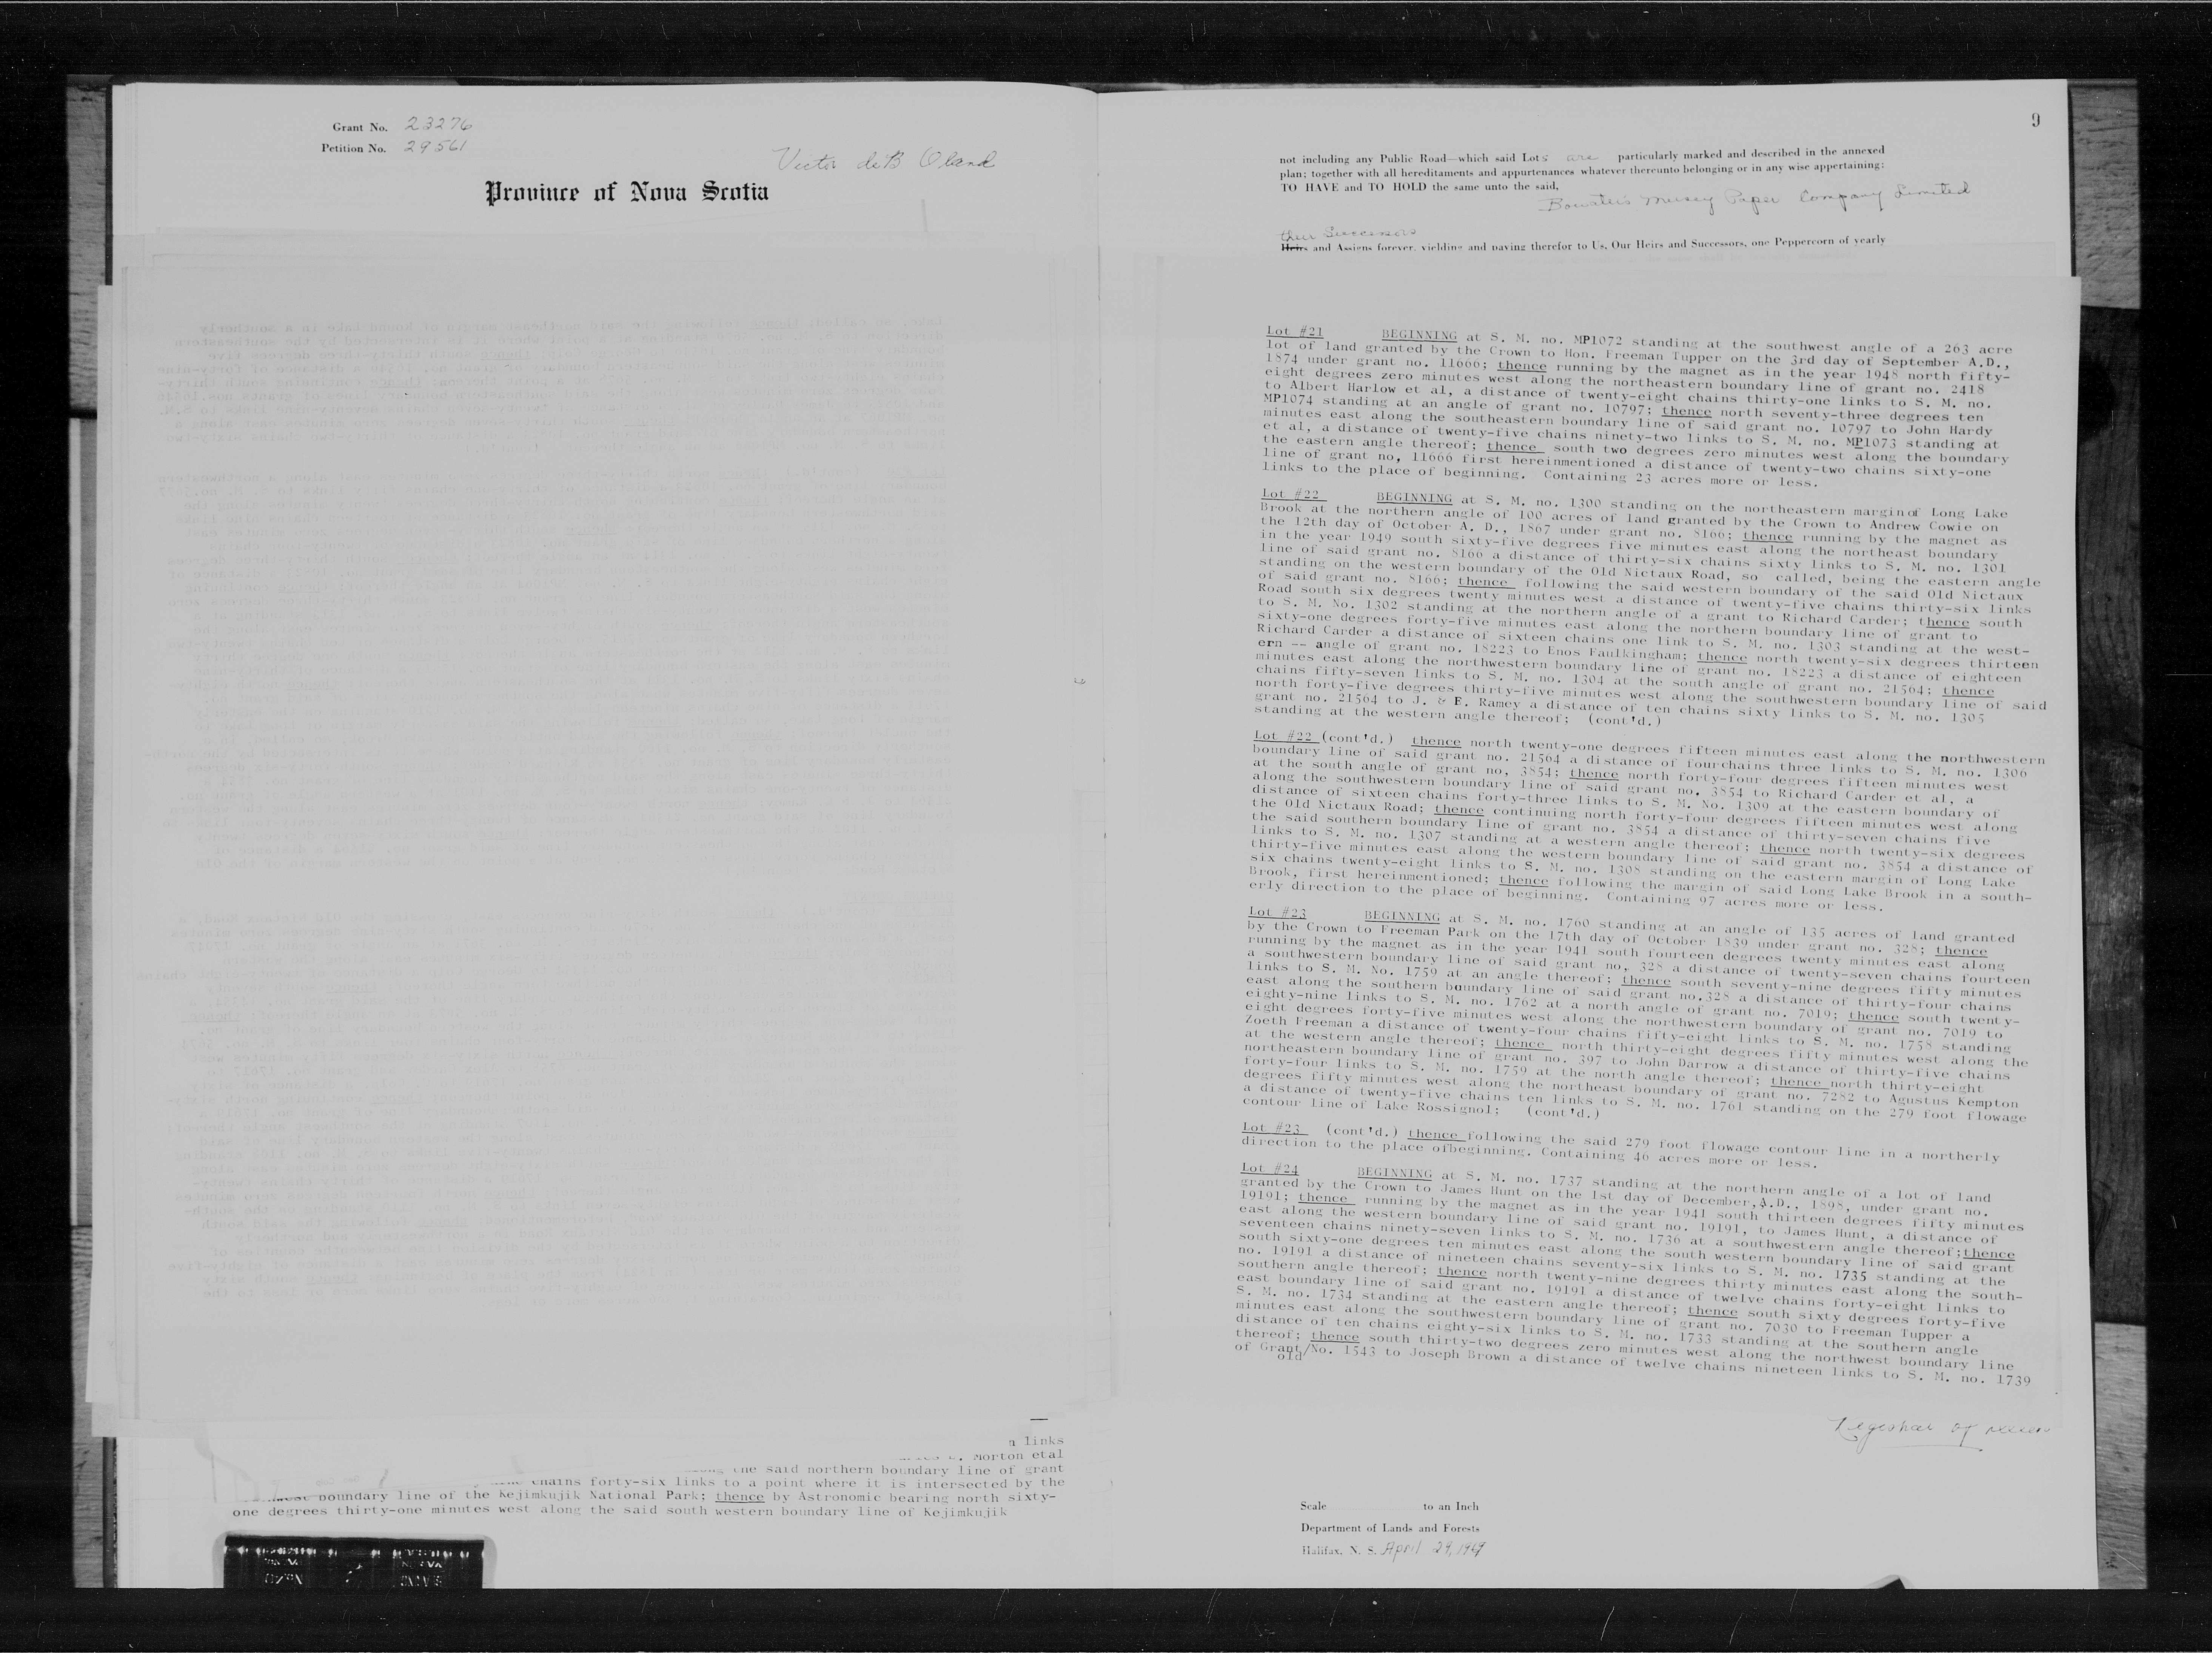 Grant No. 23276
Petition No. 29561
Victor deB Oland
Province of Nova Scotia
n links
Morton etal
the said northern boundary line of grant
chains forty-six links to a point where it is intersected by the
boundary line of the Kejimkujik National Park; thence by Astronomic bearing north sixty-
one degrees thirty-one minutes west along the said south western boundary line of Kejimkujik
9
not including any Public Road—which said Lots are particularly marked and described in the annexed
plan; together with all hereditaments and appurtenances whatever thereunto belonging or in any wise appertaining:
TO HAVE and TO HOLD the same unto the said,
Bowaters Mersey Paper Company Limited
their Successors
Heirs and Assigns forever, yielding and paying therefor to Us, Our Heirs and Successors, one Peppercorn of yearly
Lot #21 BEGINNING at S. M. no. MP1072 standing at the southwest angle of a 263 acre
lot of land granted by the Crown to Hon. Freeman Tupper on the 3rd day of September A.D.,
1874 under grant no. 11666; thence running by the magnet as in the year 1948 north fifty-
eight degrees zero minutes west along the northeastern boundary line of grant no. 2418
to Albert Harlow et al, a distance of twenty-eight chains thirty-one links to S. M. no.
MP1074 standing at an angle of grant no. 10797; thence north seventy-three degrees ten
minutes east along the southeastern boundary line of said grant no. 10797 to John Hardy
et al, a distance of twenty-five chains ninety-two links to S. M. no. MP1073 standing at
the eastern angle thereof; thence south two degrees zero minutes west along the boundary
line of grant no, 11666 first hereinmentioned a distance of twenty-two chains sixty-one
links to the place of beginning. Containing 23 acres more or less.
Lot #22 BEGINNING at S. M. no. 1300 standing on the northeastern marginof Long Lake
Brook at the northern angle of 100 acres of land granted by the Crown to Andrew Cowie on
the 12th day of October A. D., 1867 under grant no. 8166; thence running by the magnet as
in the year 1949 south sixty-five degrees five minutes east along the northeast boundary
line of said grant no. 8166 a distance of thirty-six chains sixty links to S. M. no. 1301
standing on the western boundary of the Old Nictaux Road, so called, being the eastern angle
of said grant no. 8166; thence following the said western boundary of the said Old Nictaux
Road south six degrees twenty minutes west a distance of twenty-five chains thirty-six links
to S. M. No. 1302 standing at the northern angle of a grant to Richard Carder; thence south
sixty-one degrees forty-five minutes east along the northern boundary line of grant to
Richard Carder a distance of sixteen chains one link to S. M. no. 1303 standing at the west-
ern -- angle of grant no. 18223 to Enos Faulkingham; thence north twenty-six degrees thirteen
minutes east along the northwestern boundary line of grant no. 18223 a distance of eighteen
chains fifty-seven links to S. M. no. 1304 at the south angle of grant no. 21564; thence
north forty-five degrees thirty-five minutes west along the southwestern boundary line of said
grant no. 21564 to J. & E. Ramey a distance of ten chains sixty links to S. M. no. 1305
standing at the western angle thereof; (cont'd.)
Lot #22 (cont'd.) thence north twenty-one degrees fifteen minutes east along the northwestern
boundary line of said grant no. 21564 a distance of fourchains three links to S. M. no. 1306
at the south angle of grant no, 3854; thence north forty-four degrees fifteen minutes west
along the southwestern boundary line of said grant no. 3854 to Richard Carder et al, a
distance of sixteen chains forty-three links to S. M. No. 1309 at the eastern boundary of
the Old Nictaux Road; thence continuing north forty-four degrees fifteen minutes west along
the said southern boundary line of grant no. 3854 a distance of thirty-seven chains five
links to S. M. no. 1307 standing at a western angle thereof; thence north twenty-six degrees
thirty-five minutes east along the western boundary line of said grant no. 3854 a distance of
six chains twenty-eight links to S. M. no. 1308 standing on the eastern margin of Long Lake
Brook, first hereinmentioned; thence following the margin of said Long Lake Brook in a south-
erly direction to the place of beginning. Containing 97 acres more or less.
Lot #23 BEGINNING at S. M. no. 1760 standing at an angle of 135 acres of land granted
by the Crown to Freeman Park on the 17th day of October 1839 under grant no. 328; thence
running by the magnet as in the year 1941 south fourteen degrees twenty minutes east along
a southwestern boundary line of said grant no, 328 a distance of twenty-seven chains fourteen
links to S. M. No. 1759 at an angle thereof; thence south seventy-nine degrees fifty minutes
east along the southern boundary line of said grant no.328 a distance of thirty-four chains
eighty-nine links to S. M. no. 1762 at a north angle of grant no. 7019; thence south twenty-
eight degrees forty-five minutes west along the northwestern boundary of grant no. 7019 to
Zoeth Freeman a distance of twenty-four chains fifty-eight links to S. M. no. 1758 standing
at the western angle thereof; thence north thirty-eight degrees fifty minutes west along the
northeastern boundary line of grant no. 397 to John Darrow a distance of thirty-five chains
forty-four links to S. M. no. 1759 at the north angle thereof; thence north thirty-eight
degrees fifty minutes west along the northeast boundary of grant no. 7282 to Agustus Kempton
a distance of twenty-five chains ten links to S. M. no. 1761 standing on the 279 foot flowage
contour line of Lake Rossignol; (cont'd.)
Lot #23 (cont'd.) thence following the said 279 foot flowage contour line in a northerly
direction to the place ofbeginning. Containing 46 acres more or less.
Lot #24 BEGINNING at S. M. no. 1737 standing at the northern angle of a lot of land
granted by the Crown to James Hunt on the 1st day of December,A.D., 1898, under grant no.
19191; thence running by the magnet as in the year 1941 south thirteen degrees fifty minutes
east along the western boundary line of said grant no. 19191, to James Hunt, a distance of
seventeen chains ninety-seven links to S. M. no. 1736 at a southwestern angle thereof;thence
south sixty-one degrees ten minutes east along the south western boundary line of said grant
no. 19191 a distance of nineteen chains seventy-six links to S. M. no. 1735 standing at the
southern angle thereof; thence north twenty-nine degrees thirty minutes east along the south-
east boundary line of said grant no. 19191 a distance of twelve chains forty-eight links to
S. M. no. 1734 standing at the eastern angle thereof; thence south sixty degrees forty-five
minutes east along the southwestern boundary line of grant no. 7030 to Freeman Tupper a
distance of ten chains eighty-six links to S. M. no. 1733 standing at the southern angle
thereof; thence south thirty-two degrees zero minutes west along the northwest boundary line
of Grant/No. 1543 to Joseph Brown a distance of twelve chains nineteen links to S. M. no. 1739
old
Scale to an Inch
Department of Lands and Forests
Halifax, N. S. April 29, 1969